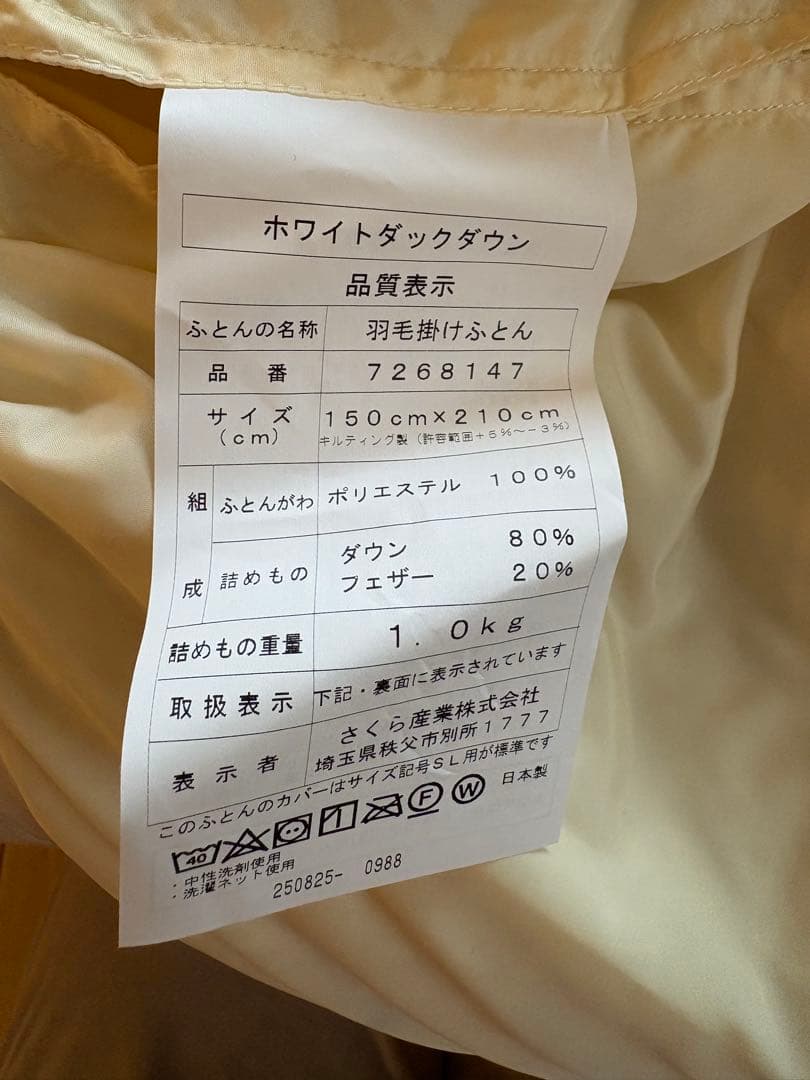 ホワイトダックダウン
品質表示
ふとんの名称 羽毛掛けふとん
品番 7268147
サイズ(cm) 150cm×210cm
キルティング製（許容範囲＋5％～－3％）
組成 ふとんがわ ポリエステル 100%
詰めもの ダウン 80%
フェザー 20%
詰めもの重量 1.0kg
取扱表示 下記・裏面に表示されています
表示者 さくら産業株式会社
埼玉県秩父市別所1777
このふとんのカバーはサイズ記号SL用が標準です
40 F W 日本製
・中性洗剤使用
・洗濯ネット使用
250825- 0988